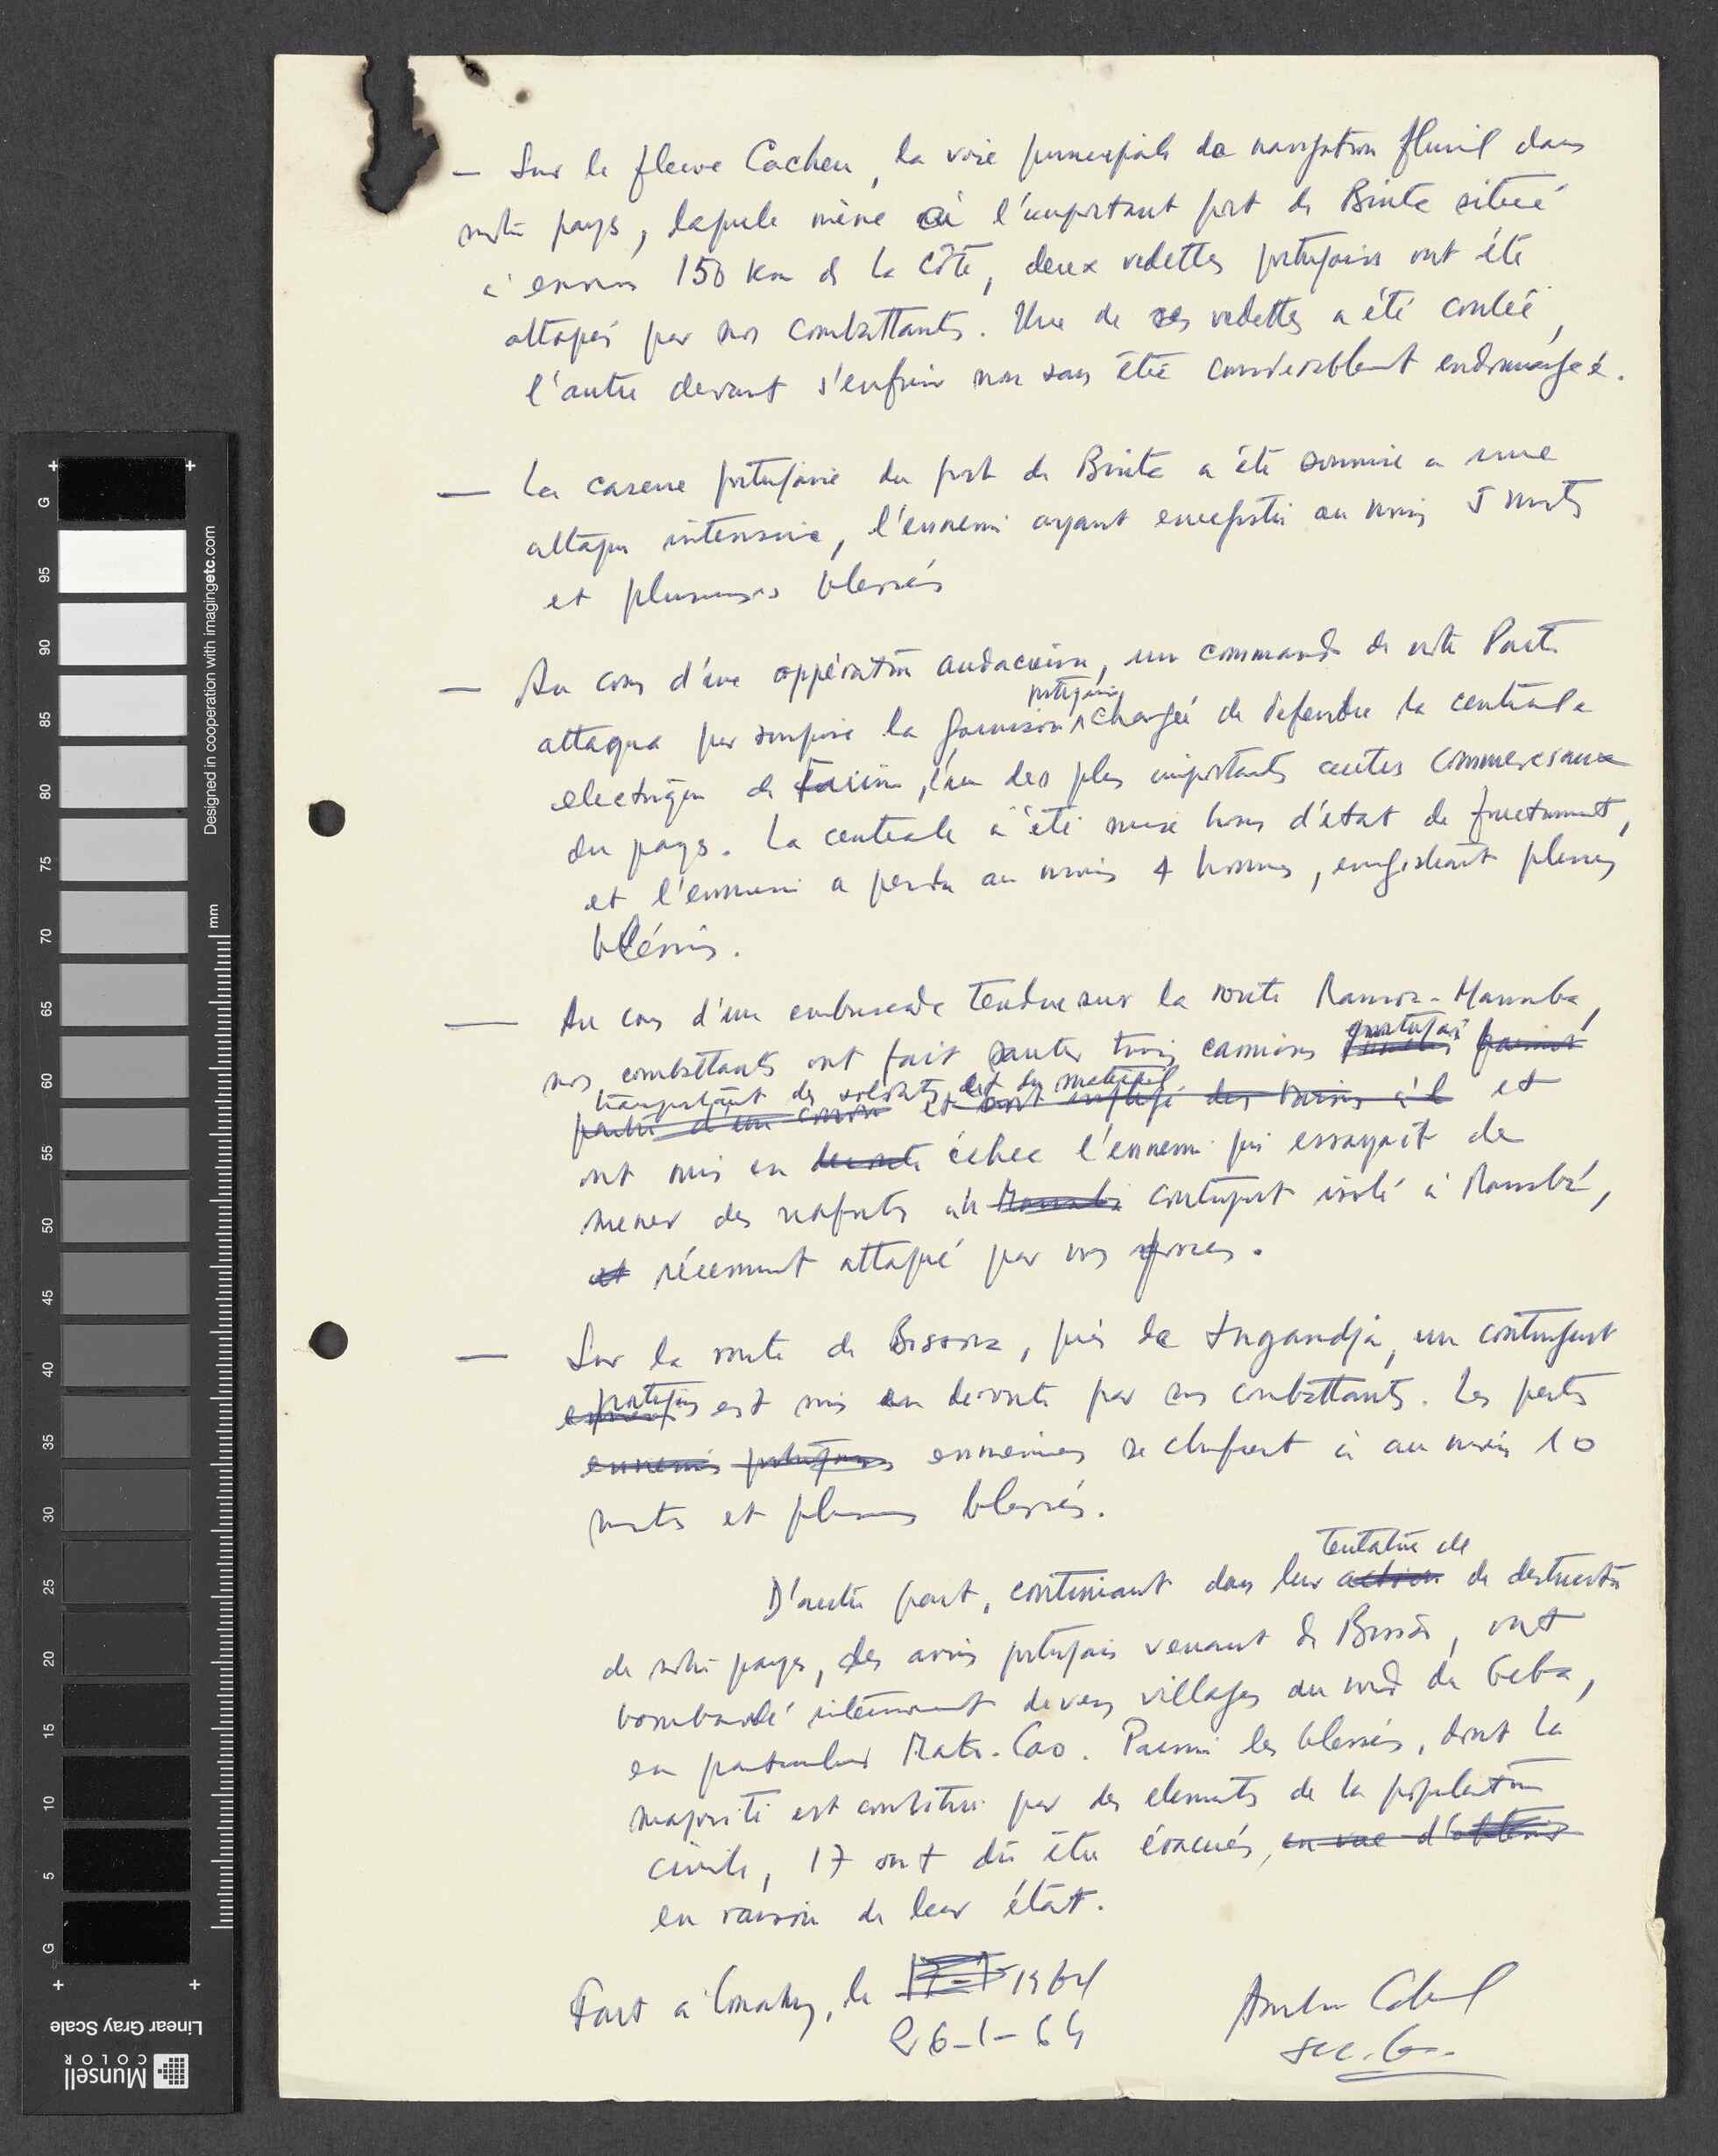 — Sur le fleuve Cacheu, la voie principale de navigation fluvil dans
notre pays, laquelle mène à l'important port de Binta situé
à environ 150 km de la côte, deux vedettes portugaises ont été
attaqués par nos combattants. Une de ces vedettes a été coulée,
l'autre devant s'enfuir non sans être considérablement endommagée.
— La caserne portugaise du port de Binta a été soumise a une
attaque intensive, l'ennemi ayant enregistré au moins 5 morts
et plusieurs blessés
— Au cours d'une oppération audacieuse, un commando de notre Parti
portugaise
attaqua par surprise la garnison chargée de défendre la centrale
electrique de Farim, l'un des plus importants centres commerciaux
du pays. La centrale a été mise hors d'état de fonctionnement,
et l'ennemi a perdu au moins 4 hommes, enregistrant plusieurs
blessés.
— Au cours d'une embuscade tendue sur la route Mansoa-Mansaba,
portugais
nos combattants ont fait sauter trois camions
transportant des soldats et du matériel
et
ont mis en deroute échec l'ennemi qui essayait de
mener des renforts au Mansaba contingent isolé à Mansabá,
et récemment attaqué par nos forces.
— Sur la route de Bissorã, près de Ingandja, un contingent
portugais est mis en deroute par nos combattants. Les pertes
ennemis portugaises ennemies se chiffrent à au moins 10
morts et plusieurs blessés.
tentative de
D'autre part, continuant dans leur action de destruction
de notre pays, des avions portugais venant de Bissão, ont
bombardé intensément divers villages au nord du Geba,
en particulier Mato-Cao. Parmi les blessés, dont la
majorité est constitué par des elements de la population
civile, 17 ont dû être évacués, en vue d'obtenir
en raison de leur état.
Fait à Conakry, le 1964
26-1-64
Amilcar Cabral
Sec. Gen.
Linear Gray Scale
Munsell
COLOR
Designed in cooperation with imagingetc.com
mm
G
95
90
85
80
75
70
65
60
55
50
45
40
35
30
25
20
15
10
5
G